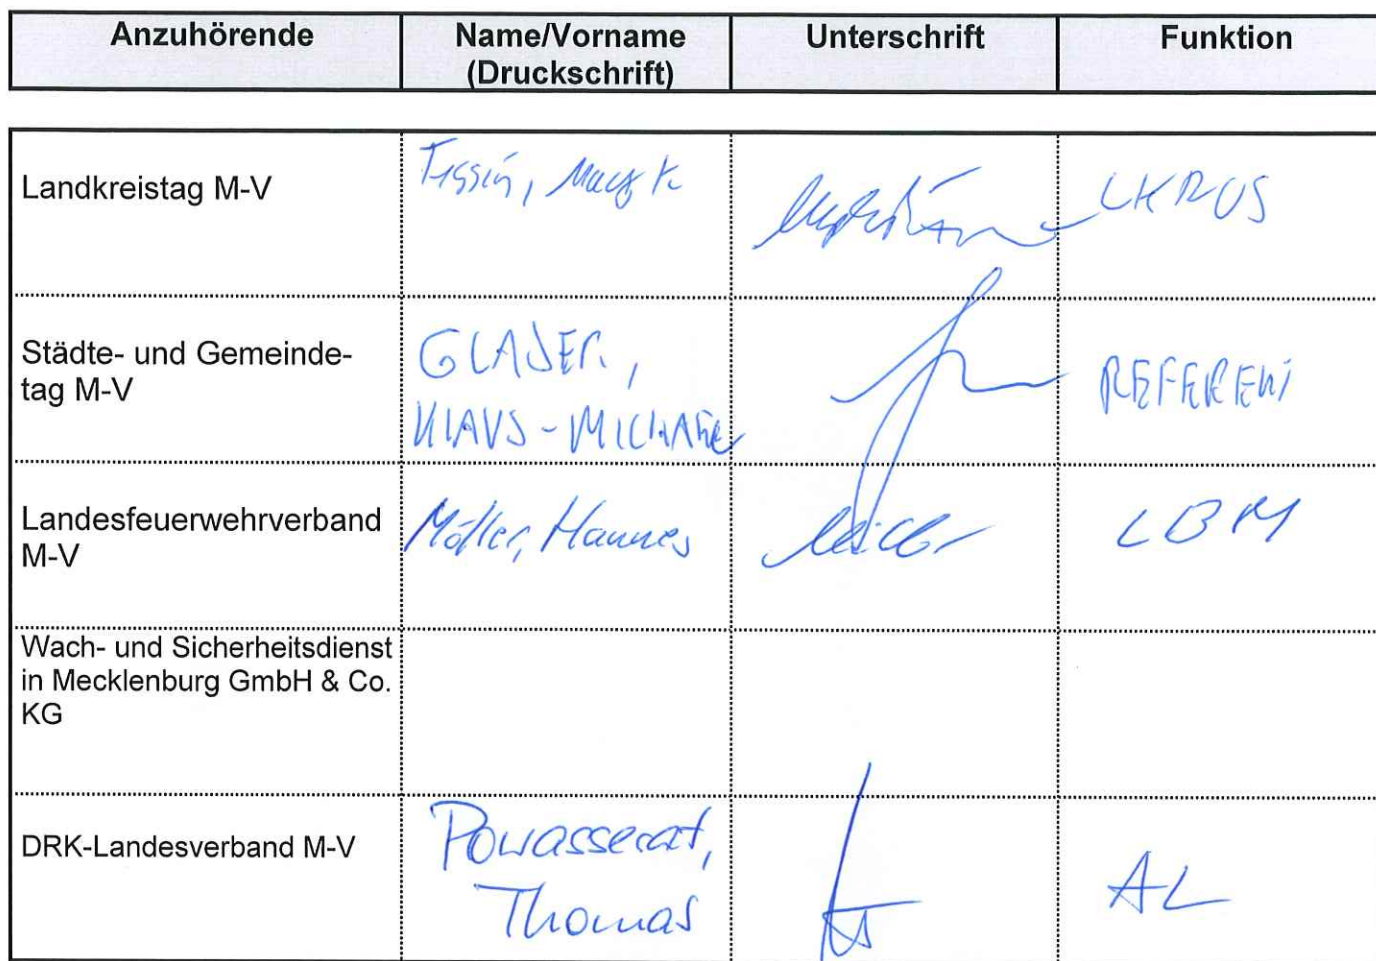 Anzuhörende Name/Vorname Unterschrift Funktion
(Druckschrift)
Landkreistag M-V
Tissin, LKROS
Städte- und Gemeinde-
tag M-V
GLASER,
KLAUS-MICHAEL
REFERENT
Landesfeuerwehrverband
M-V
Möller, Hannes LBM
Wach- und Sicherheitsdienst
in Mecklenburg GmbH & Co.
KG
DRK-Landesverband M-V
Powasserat,
Thomas
AL